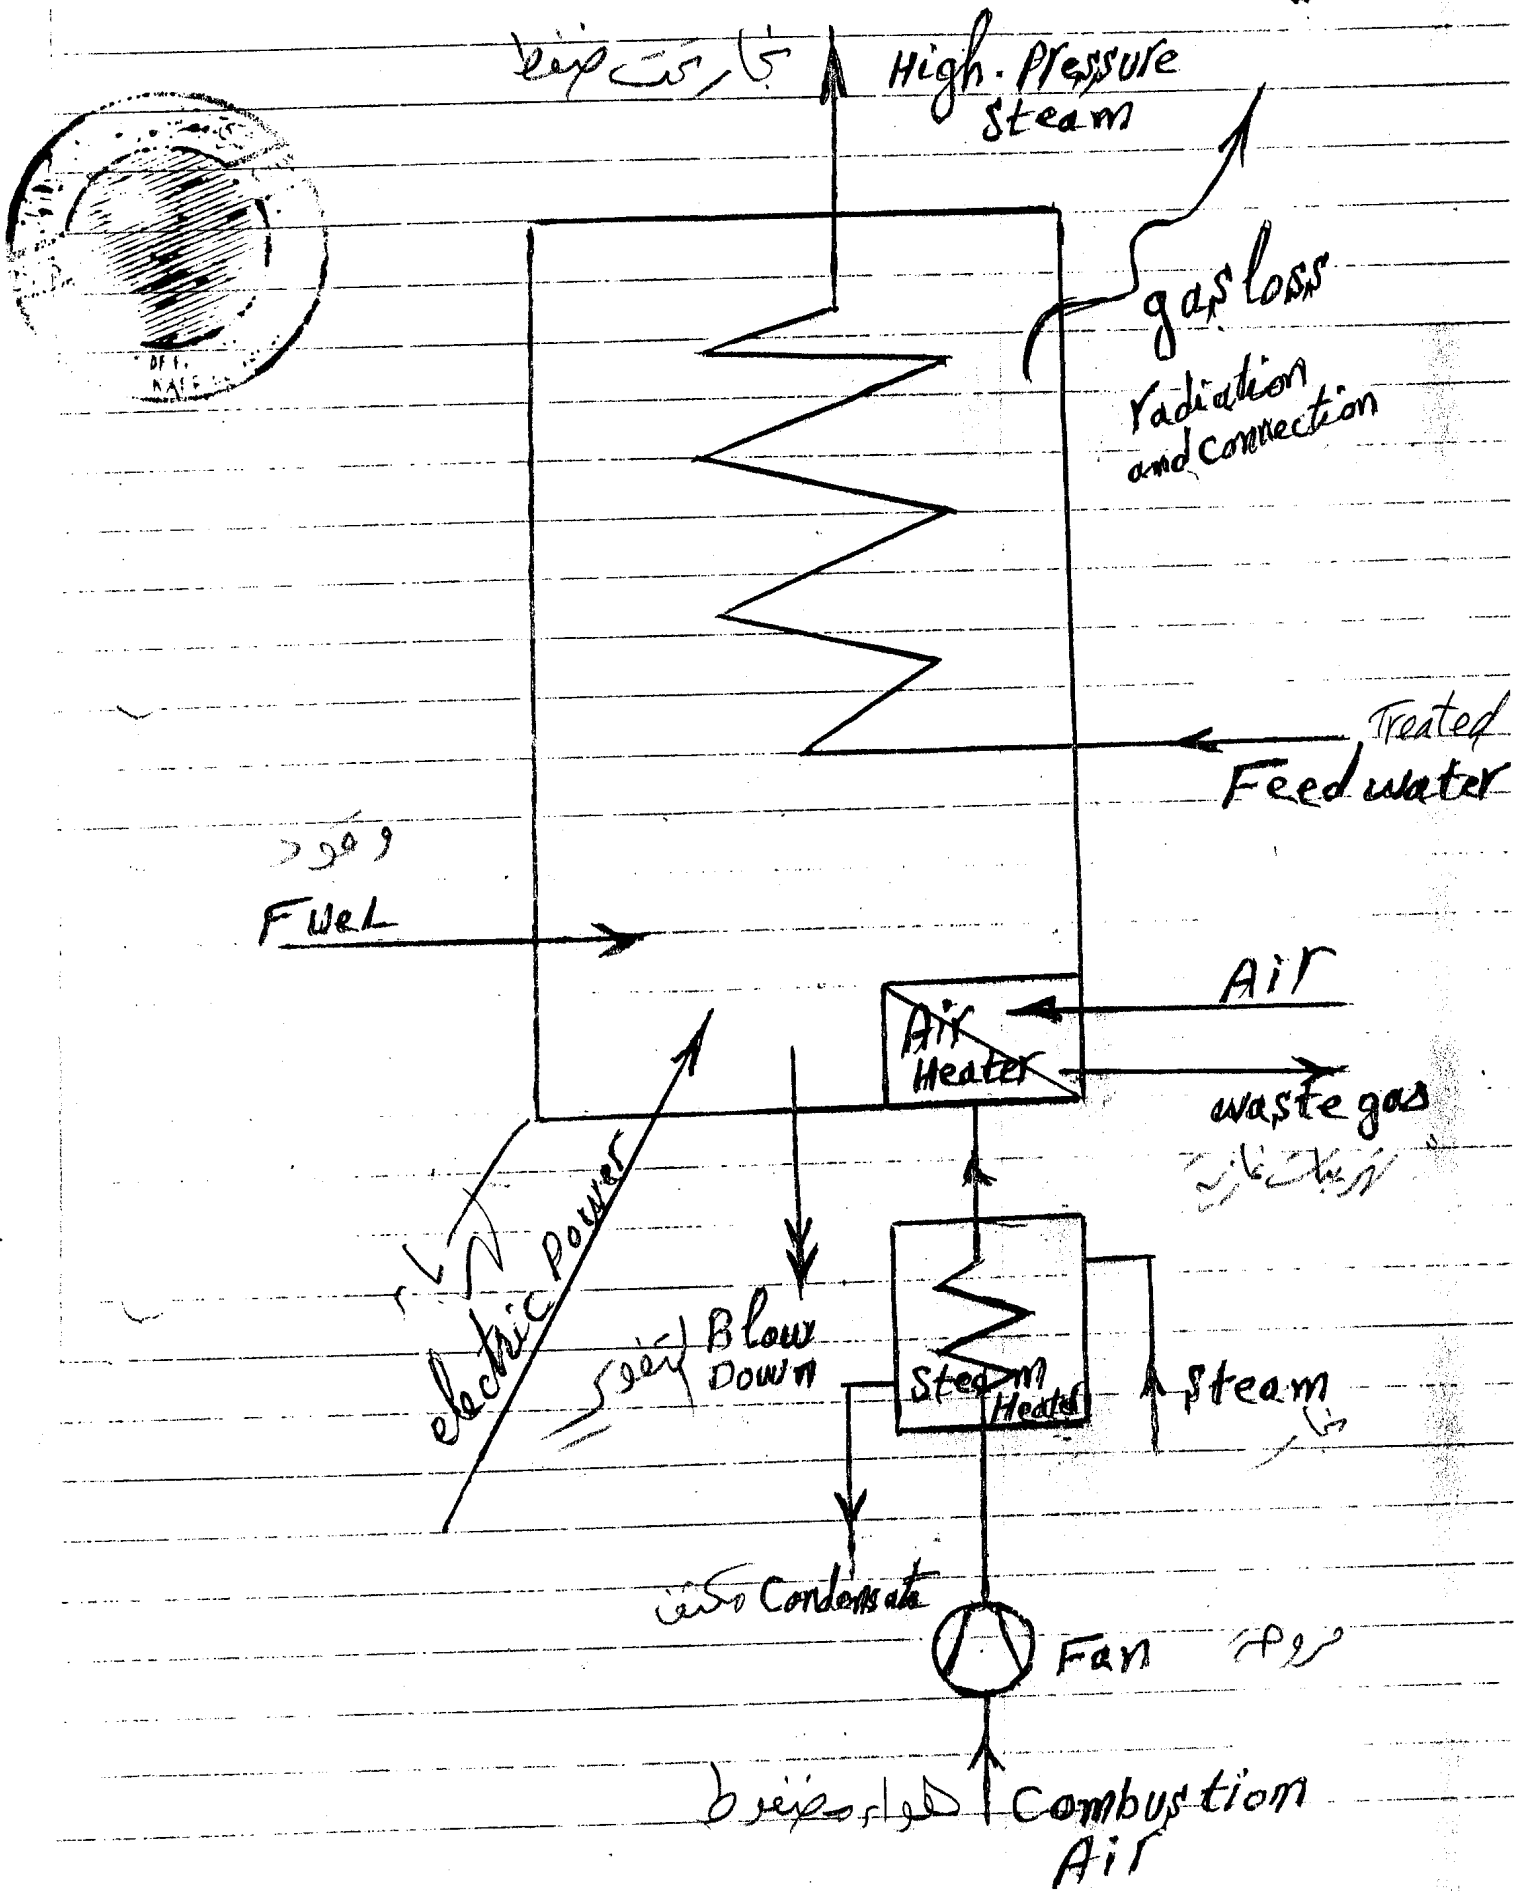 بخار تحت ضغط
High. Pressure
steam
gas loss
radiation
and connection
Treated
Feed water
وقود
Fuel
Air
Air
Heater
waste gas
electric power
Blow
Down
Steam
Heater
steam
بخار
مكثف Condensate
Fan مروحة
هواء مضغوط Combustion
Air